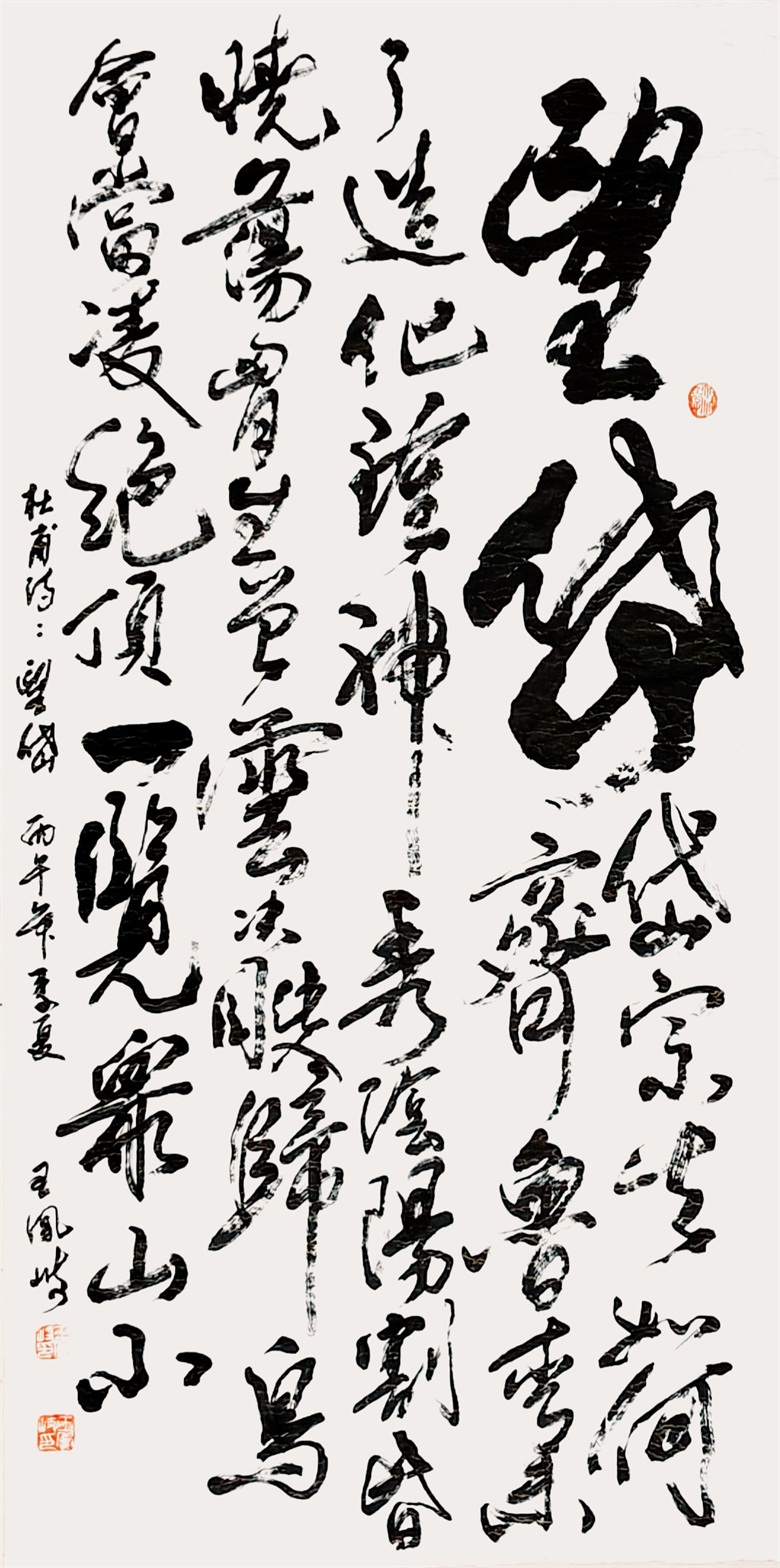 望岱
岱宗夫如何
齊魯青未
了造化鍾神秀陰陽割昏
曉蕩胷生曾雲决眦入歸鳥
會當凌絕頂一覽衆山小
杜甫詩：望岱 丙午年季夏 王鳳岐